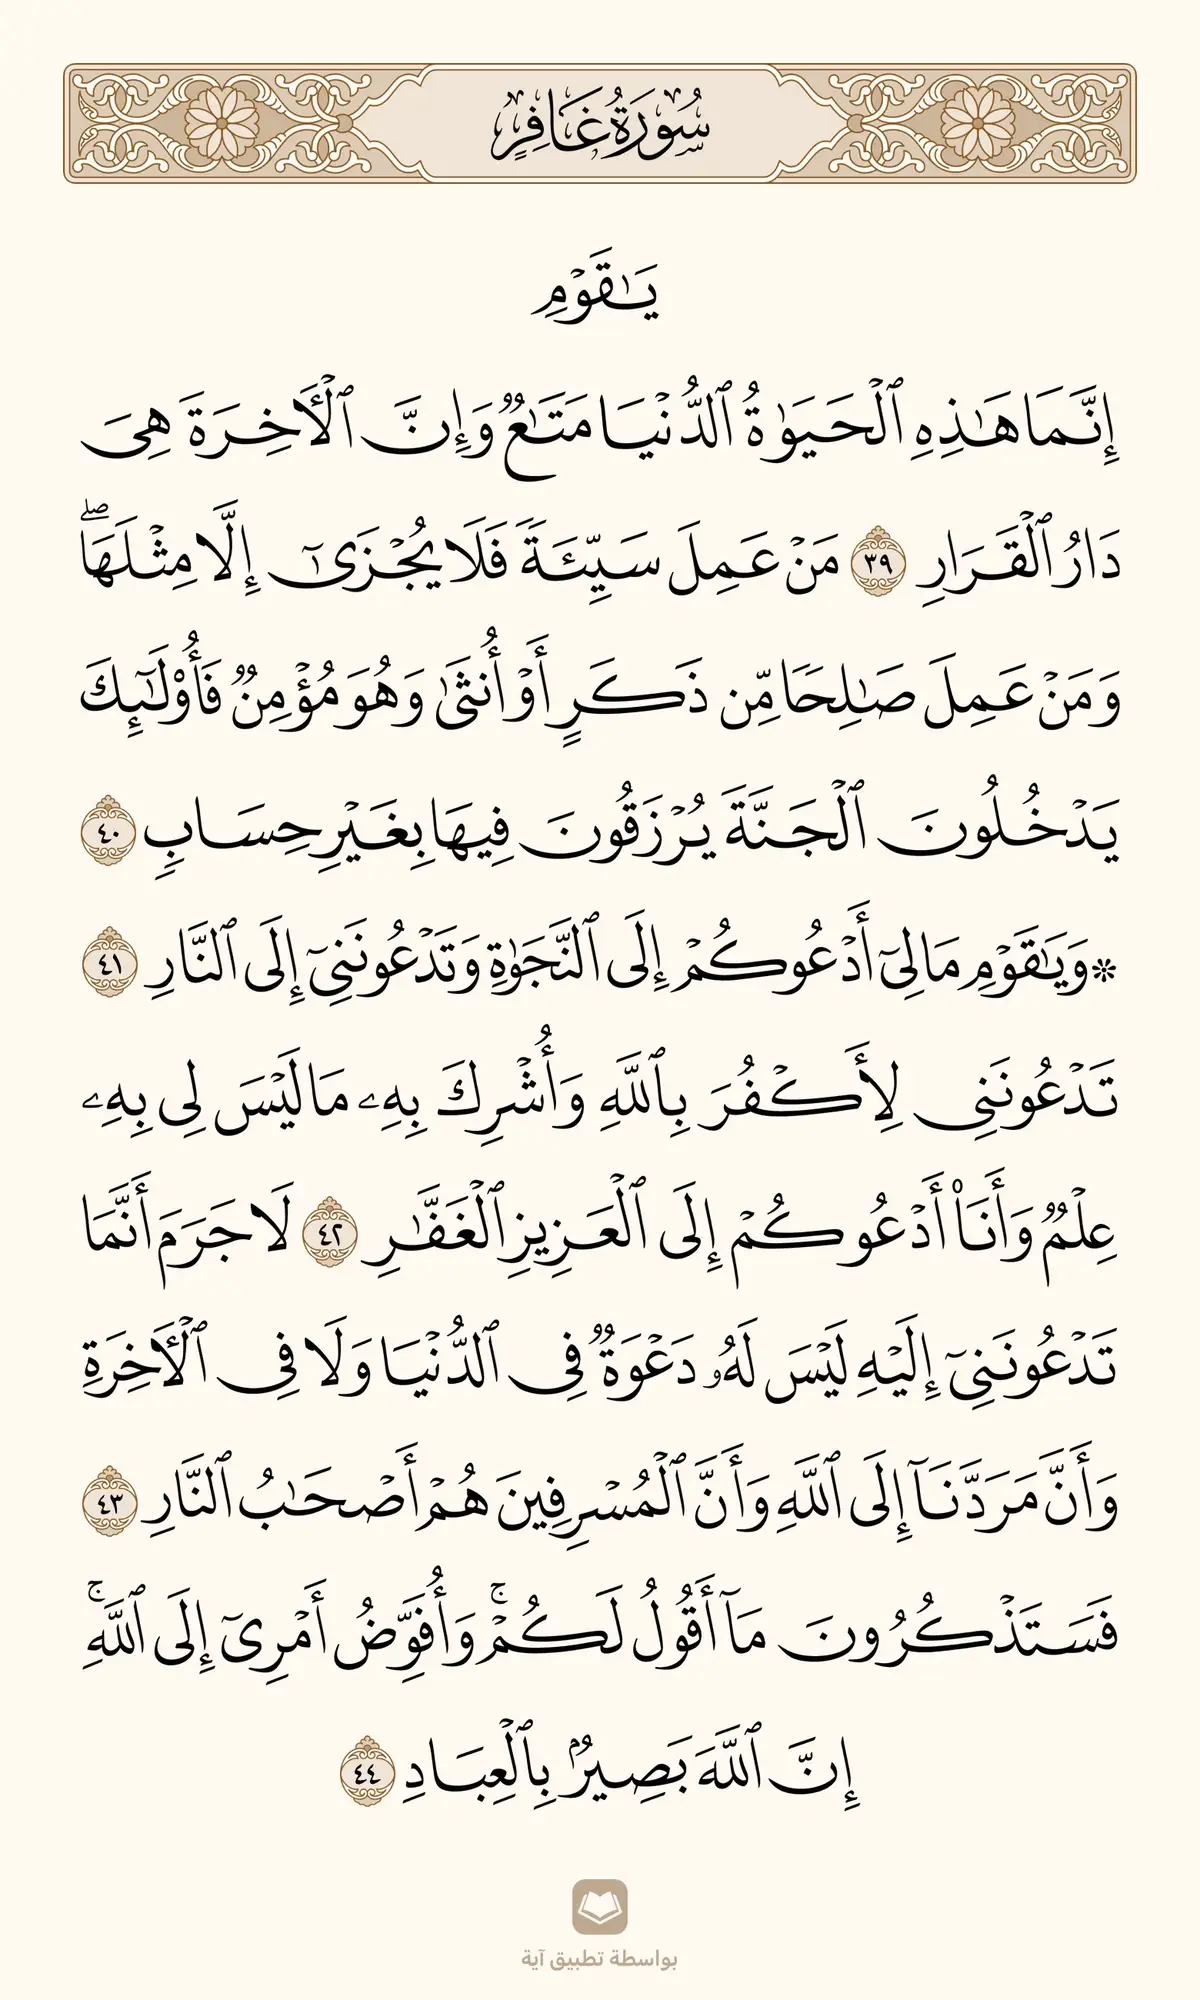 سُورَةُ غَافِرٍ
يَٰقَوْمِ
إِنَّمَا هَٰذِهِ ٱلْحَيَوٰةُ ٱلدُّنْيَا مَتَٰعٌ وَإِنَّ ٱلْءَاخِرَةَ هِىَ
دَارُ ٱلْقَرَارِ ٣٩ مَنْ عَمِلَ سَيِّئَةً فَلَا يُجْزَىٰٓ إِلَّا مِثْلَهَا ۖ
وَمَنْ عَمِلَ صَٰلِحًا مِّن ذَكَرٍ أَوْ أُنثَىٰ وَهُوَ مُؤْمِنٌ فَأُو۟لَٰٓئِكَ
يَدْخُلُونَ ٱلْجَنَّةَ يُرْزَقُونَ فِيهَا بِغَيْرِ حِسَابٍ ٤٠
۞ وَيَٰقَوْمِ مَا لِىٓ أَدْعُوكُمْ إِلَى ٱلنَّجَوٰةِ وَتَدْعُونَنِىٓ إِلَى ٱلنَّارِ ٤١
تَدْعُونَنِى لِأَكْفُرَ بِٱللَّهِ وَأُشْرِكَ بِهِۦ مَا لَيْسَ لِى بِهِۦ
عِلْمٌ وَأَنَا۠ أَدْعُوكُمْ إِلَى ٱلْعَزِيزِ ٱلْغَفَّٰرِ ٤٢ لَا جَرَمَ أَنَّمَا
تَدْعُونَنِىٓ إِلَيْهِ لَيْسَ لَهُۥ دَعْوَةٌ فِى ٱلدُّنْيَا وَلَا فِى ٱلْءَاخِرَةِ
وَأَنَّ مَرَدَّنَآ إِلَى ٱللَّهِ وَأَنَّ ٱلْمُسْرِفِينَ هُمْ أَصْحَٰبُ ٱلنَّارِ ٤٣
فَسَتَذْكُرُونَ مَآ أَقُولُ لَكُمْ ۚ وَأُفَوِّضُ أَمْرِىٓ إِلَى ٱللَّهِ ۚ
إِنَّ ٱللَّهَ بَصِيرٌۢ بِٱلْعِبَادِ ٤٤
بواسطة تطبيق آية